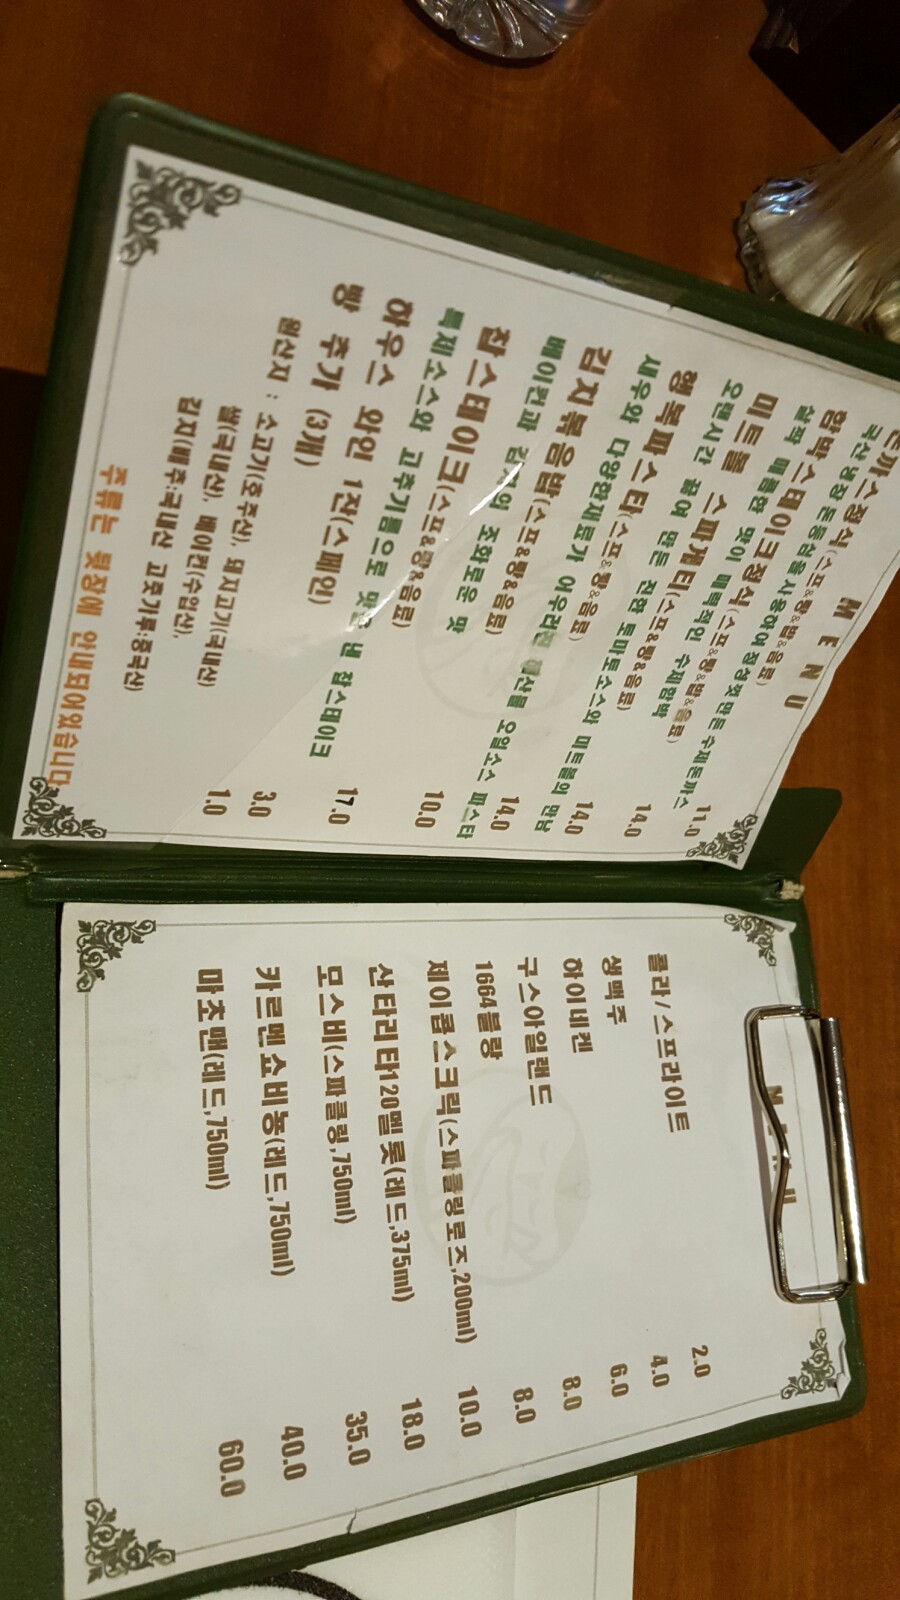 MENU
돈까스정식(스프&빵&밥&음료) 11.0
국산냉장 돈등심을 사용하여 정성껏 만든 수제돈까스
함박스테이크정식(스프&빵&밥&음료) 14.0
살짝 매콤한 맛이 매력적인 수제함박
미트볼 스파게티(스프&빵&음료) 14.0
오랜시간 끓여 만든 진한 토마토소스와 미트볼의 만남
행복파스타(스프&빵&음료) 14.0
새우와 다양한재료가 어우러진 해산물 오일소스 파스타
김치볶음밥(스프&빵&음료) 10.0
베이컨과 김치의 조화로운 맛
찹스테이크(스프&빵&음료) 17.0
특제소스와 고추기름으로 맛을 낸 찹스테이크
하우스 와인 1잔(스페인) 3.0
빵 추가 (3개) 1.0
원산지 : 소고기(호주산), 돼지고기(국내산)
쌀(국내산), 베이컨(수입산),
김치(배추:국내산 고춧가루:중국산)
주류는 뒷장에 안내되어있습니다
MENU
콜라/스프라이트 2.0
생맥주 4.0
하이네켄 6.0
구스아일랜드 8.0
1664블랑 8.0
제이콥스크릭(스파클링로즈,200ml) 10.0
산타리타120멜롯(레드,375ml) 18.0
모스비(스파클링,750ml) 35.0
카르멘쇼비뇽(레드,750ml) 40.0
마초맨(레드,750ml) 60.0